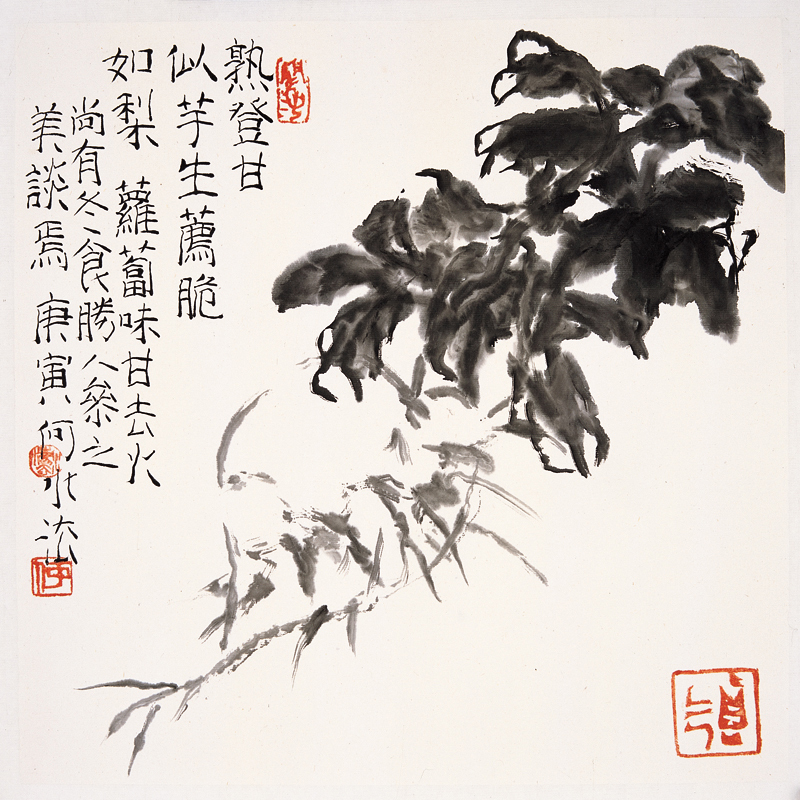 熟登甘
似芋生薦脆
如梨 蘿蔔味甘去火
尚有冬食勝人參之
美談焉 庚寅 何水法